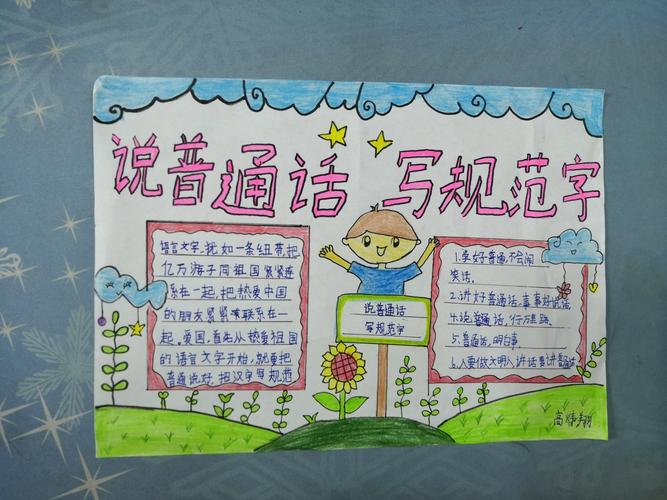 说普通话 写规范字
语言文字,犹如一条纽带,把
亿万海子同祖国紧紧连
系在一起,把热爱中国
的朋友紧紧联系在一
起。爱国,首先从热爱祖国
的语言文字开始,就要把
普通说好,把汉字写规范
说普通话
写规范字
1.学好普通,不会闹
笑话。
2.讲好普通话,事事好说话
4.说普通话,行万里路。
5.普通话,明白事。
6.人要做文明人,讲话要讲普通话